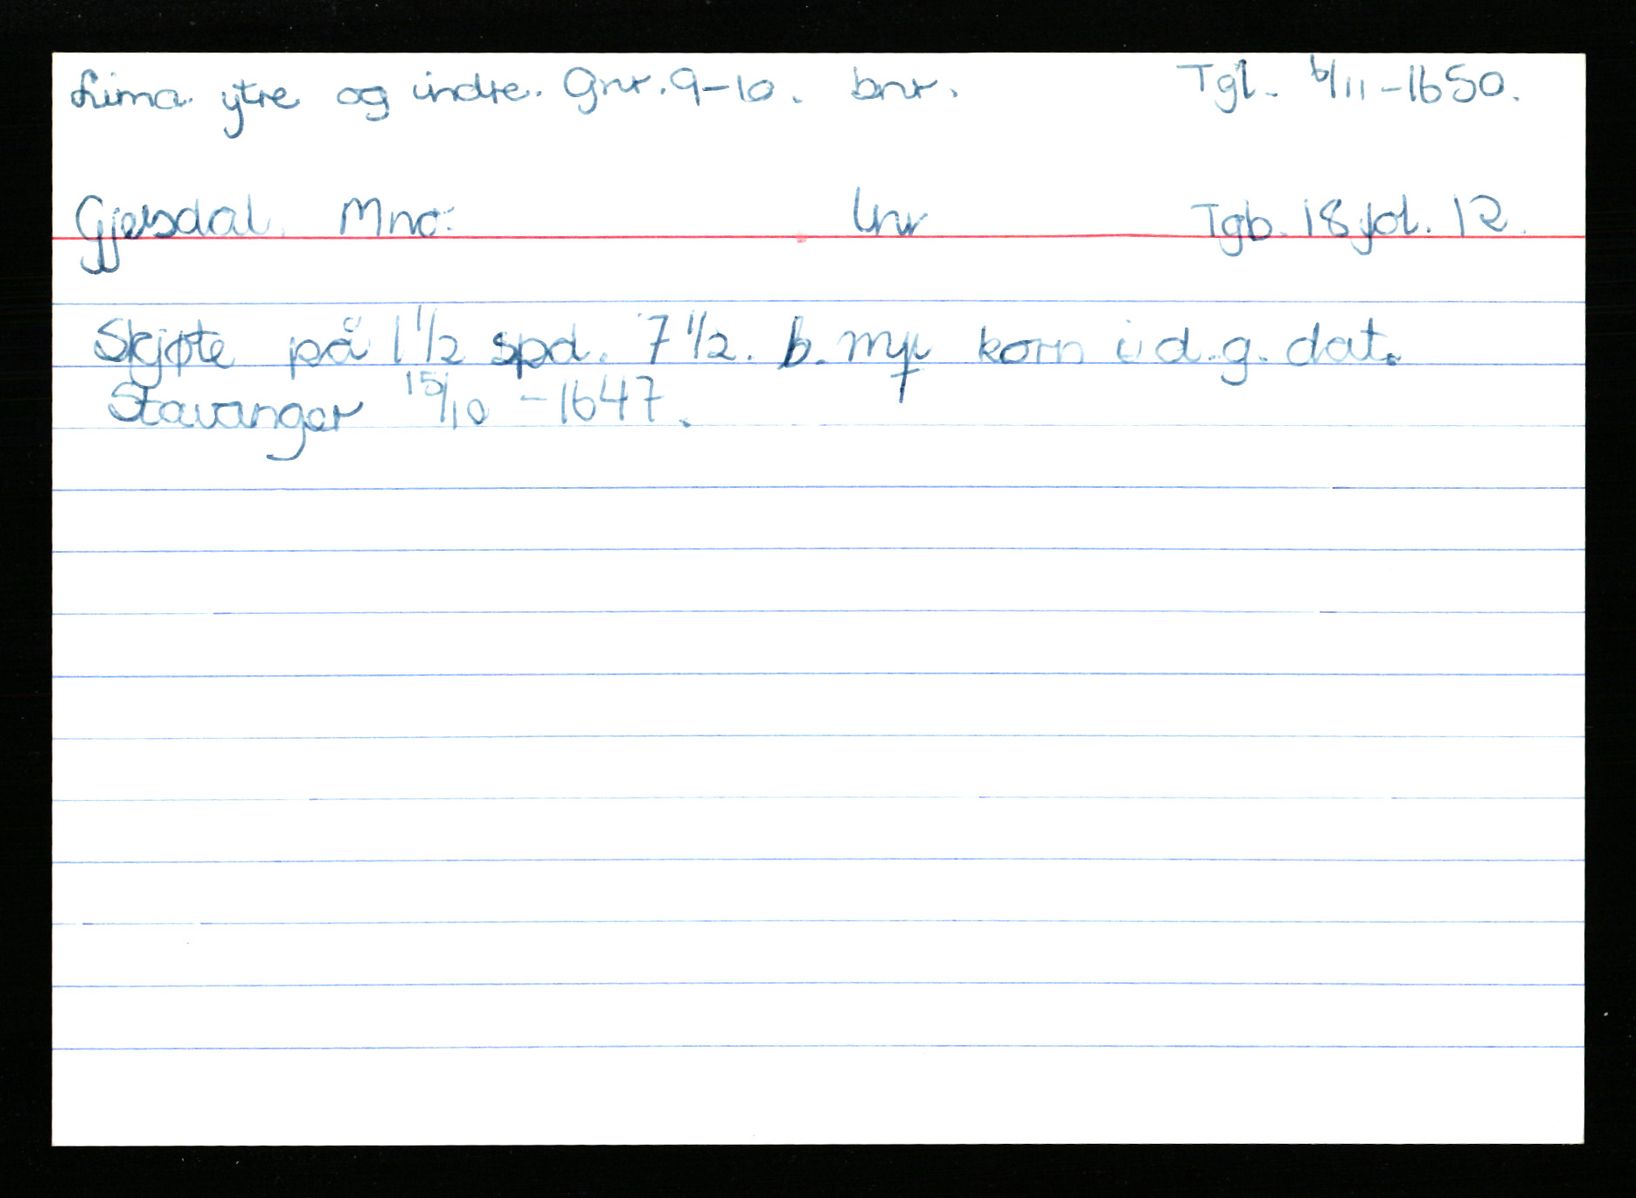 Lima ytre og indre. Gnr. 9-10. bnr. Tgl. 6/11-1650.
Gjesdal. Mnr. lnr Tgb. 18 fol. 12.
Skjøte på 1 1/2 spd. 7 1/2. b. mrk korn i d.g. dat.
Stavanger 15/10 - 1647.